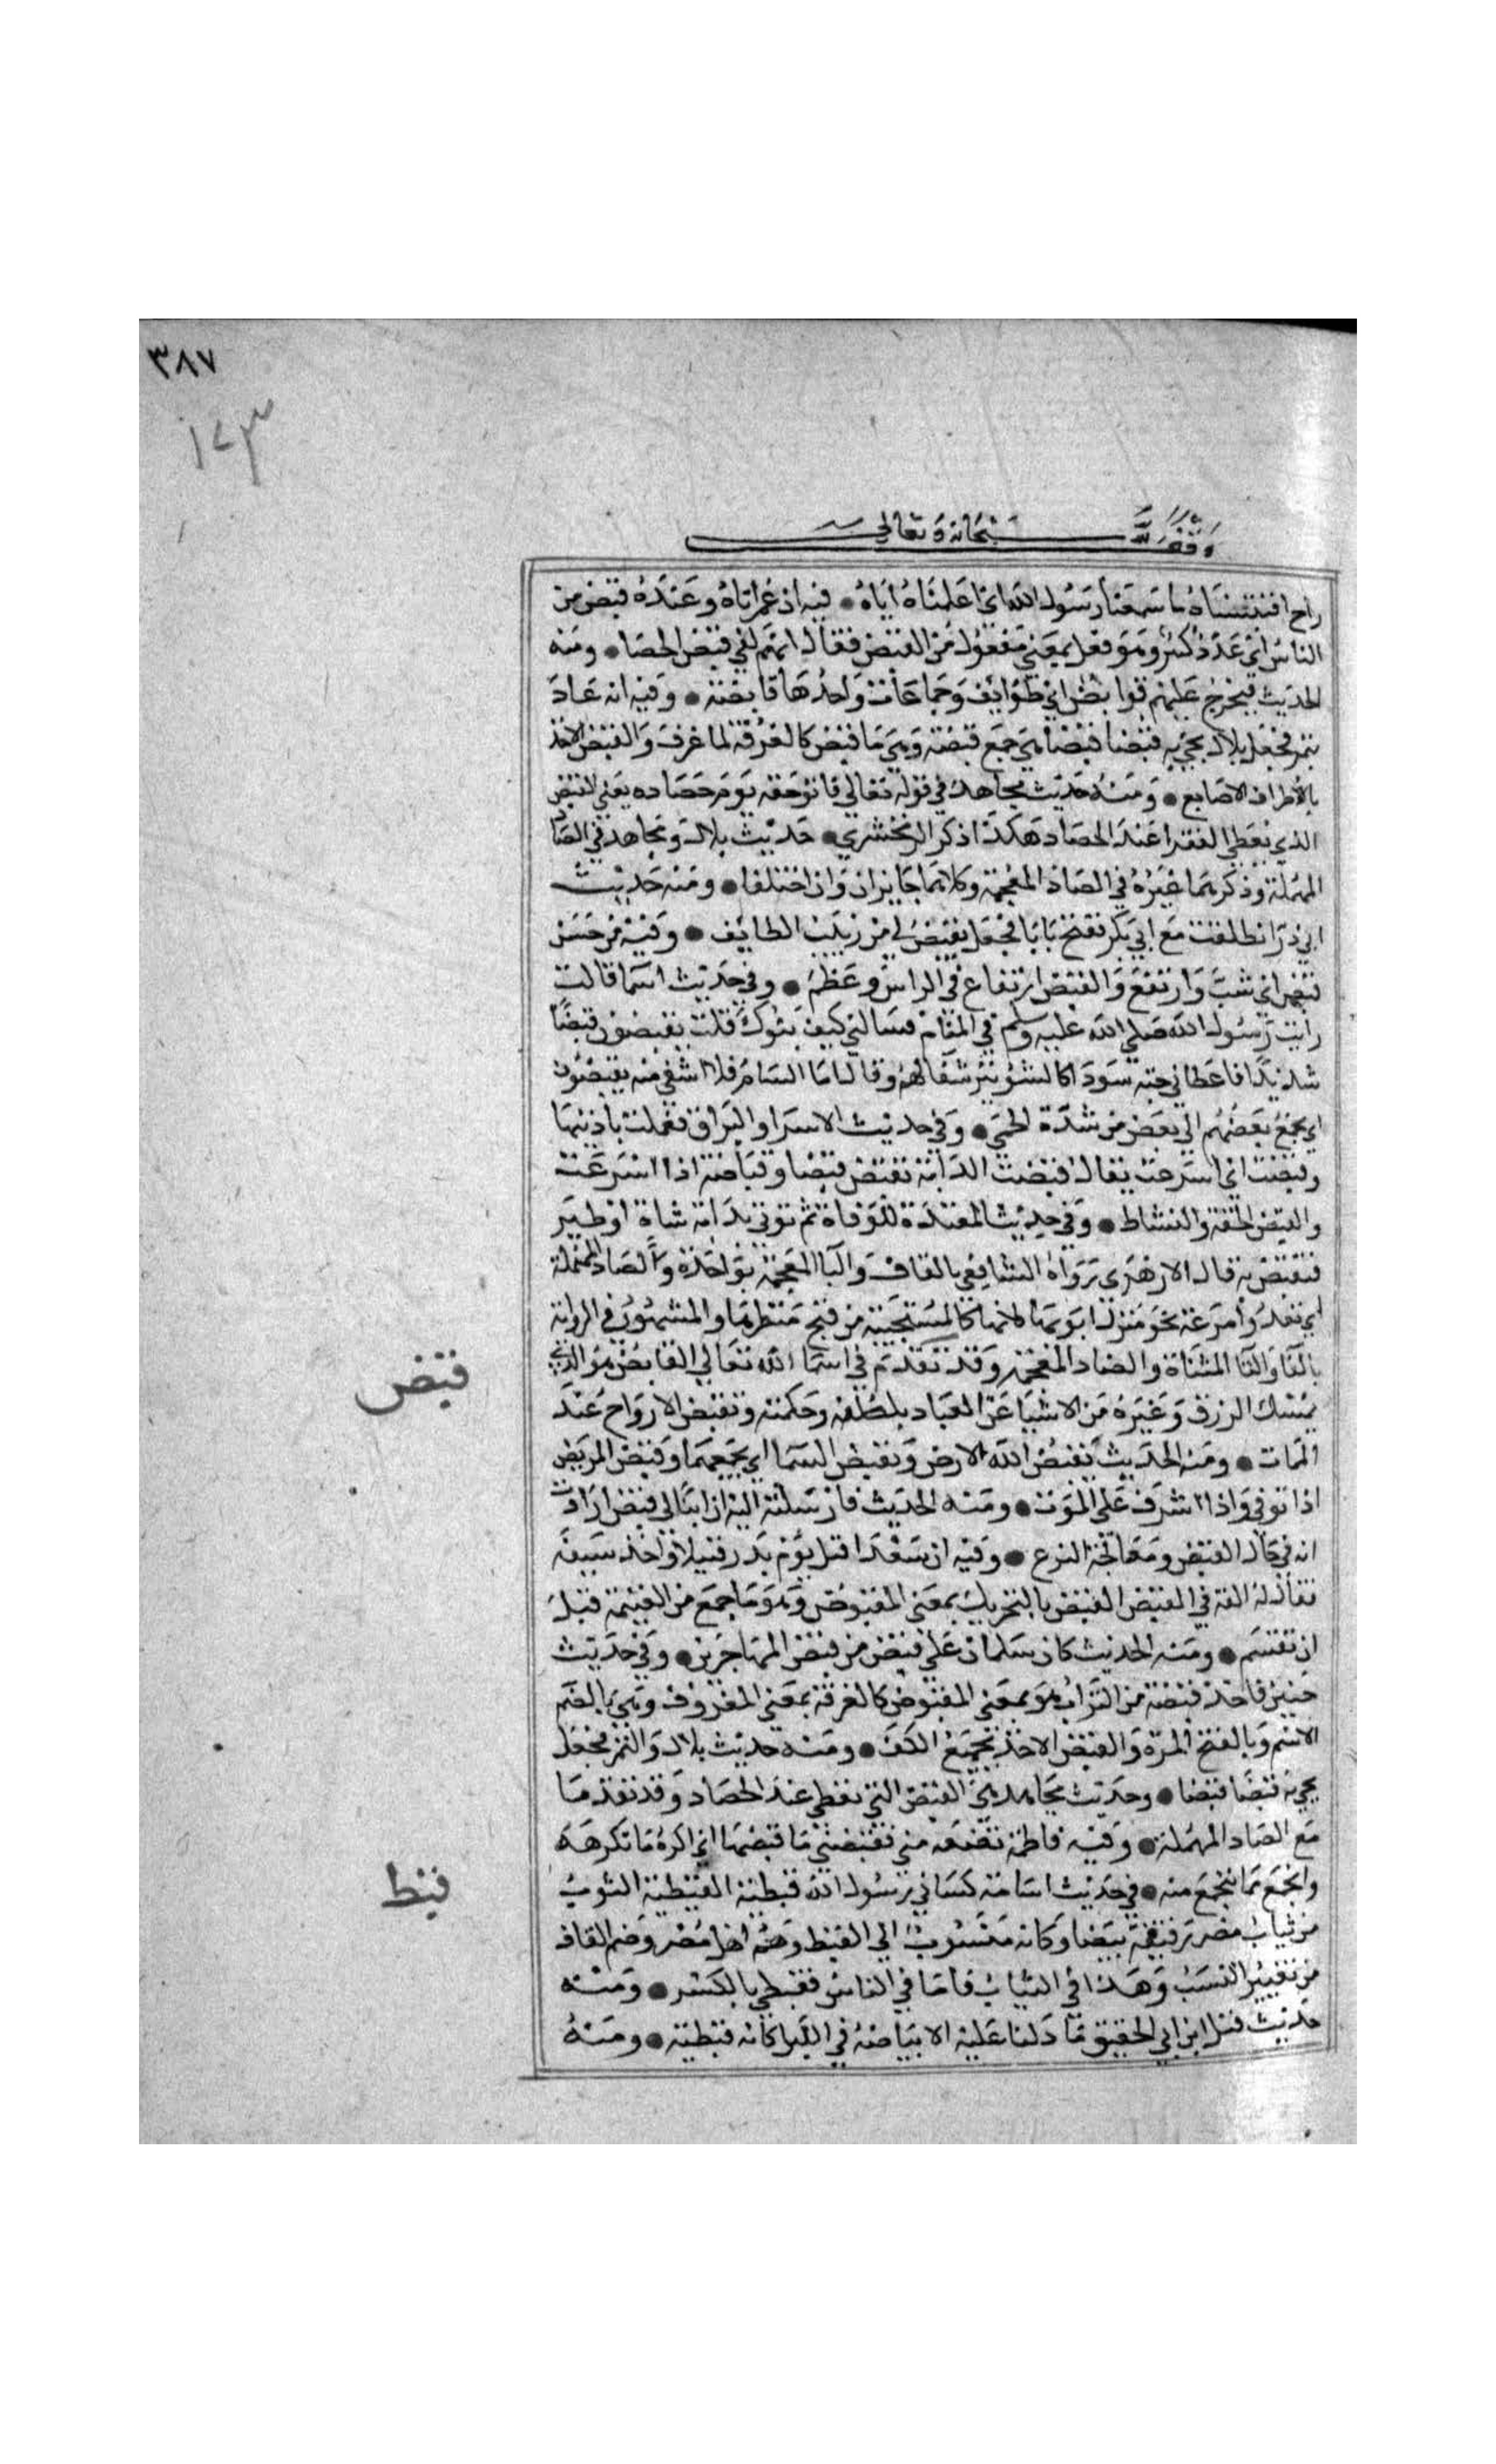 ٣٨٧
١٢٣
وقف لله سبحانه وتعالى
راح اقتبسناه ما سمعنا رسول الله اي اعلمناه اياه • فيه ان عمر اتاه وعنده قبص من
الناس اي عدد كثير وهو فعل بمعني مفعول من القبص فقال انهم لفي قبص الحصا • ومنه
الحديث فيخرج عليهم قوابص اي طوايف وجماعات واحدها قابصة • وفيه انه عاد
بتمر فجعل بلال يجي به قبصا قبصا هي جمع قبصة وهي ما قبص كالغرفة لما غرف والقبص الاخذ
بالاطراف الاصابع • ومنه حديث مجاهد في قوله تعالي واتوا حقه يوم حصاده يعني القبض
الذي نعطي الفقرا عند الحصاد هكذا ذكر الزمخشري • حديث بلال ومجاهد في الصاد
المهملة وذكرهما غيره في الضاد المعجمة وكلاهما جايزان وان اختلفا • ومنه حديث
ابي ذر انطلقت مع ابي بكر ففتح بابا فجعل يقبص لي من زبيب الطايف • وفيه من حين
قبص اي شب وارتفع والقبص ارتفاع في الراس وعظم • وفي حديث اسما قالت
رايت رسول الله صلي الله عليه وسلم في المقام فسالني كيف بنوك قلت يقبصون قبصا
شديدا فاعطاني حبة سودا كالشونيز شفا لهم وقال اما السام فلا اشفي منه يقبصون
اي يجمع بعضهم الي بعض من شدة الحمي • وفي حديث الاسرا والبراق فعملت باذنيها
وقبصت اي اسرعت يقال قبصت الدابة تقبص قبصا وقباصة اذا اسرعت
والقبص الخفة والنشاط • وفي حديث المعتدة للوفاة ثم توتي بدابة شاة او طير
فتقبص به قال الازهري رواه الشافعي بالقاف والبا المعجمة بواحدة والصاد المهملة
اي تعدوا مسرعة نحو منزل ابويها لانها كالمستحيية من قبح منظرها والمشهور في الرواية
بالفا والتا المثناة والضاد المعجمة وقد تقدم في اسما الله تعالي القابض هو الذي
يمسك الرزق وغيره من الاشيا عن العباد بلطفه وحكمته وتقبض الارواح عند
الممات • ومنه الحديث يقبض الله الارض ويقبض السما اي يجمعهما وقبض المريض
اذا توفي واذا اشرف علي الموت • ومنه الحديث فارسلت اليه ان ابنا لي قبض ارادت
انه في حال القبض ومعالجة النزع • وفيه ان سعدا قتل يوم بدر قتيلا واخذ سيفه
فقال له القه في القبض القبض بالتحريك بمعني المقبوض وهو ما جمع من الغنيمة قبل
ان تقسم • ومنه الحديث كان سلمان علي قبض من قبض المهاجرين • وفي حديث
حنين فاخذ قبضة من التراب هو بمعني المقبوض كالغرفة بمعني المغروف وهي بالضم
الاسم وبالفتح المرة والقبض الاخذ بجميع الكف • ومنه حديث بلال والتمر فجعل
يجي به قبضا قبضا • وحديث مجاهد هي القبض التي تعطي عند الحصاد وقد تقدما
مع الصاد المهملة • وفيه فاطمة بضعة مني يقبضني ما قبضها اي اكره ما تكرهه
وانجمع مما تنجمع منه • في حديث اسامة كساني رسول الله قبطية القبطية الثوب
من ثياب مصر رقيقة بيضا وكانه منسوب الي القبط وهم اهل مصر وضم القاف
من تغيير النسب وهذا في الثياب فاما في الناس فقبطي بالكسر • ومنه
حديث قتل ابن ابي الحقيق ما دلنا عليه الا بياضه في الليل كانه قبطية • ومنه
قبض
قبط